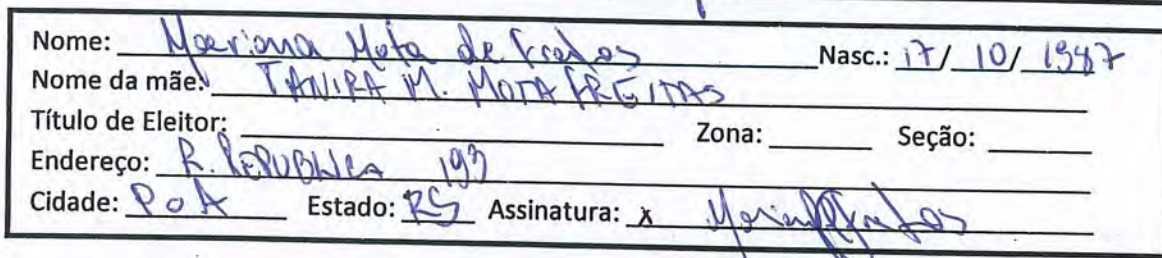 Nome: Mariana Mota de Freitas Nasc.: 17/ 10/ 1987
Nome da mãe: TANIRA M. MOTA FREITAS
Título de Eleitor: Zona: Seção:
Endereço: R. REPUBLICA 193
Cidade: PoA Estado: RS Assinatura: x